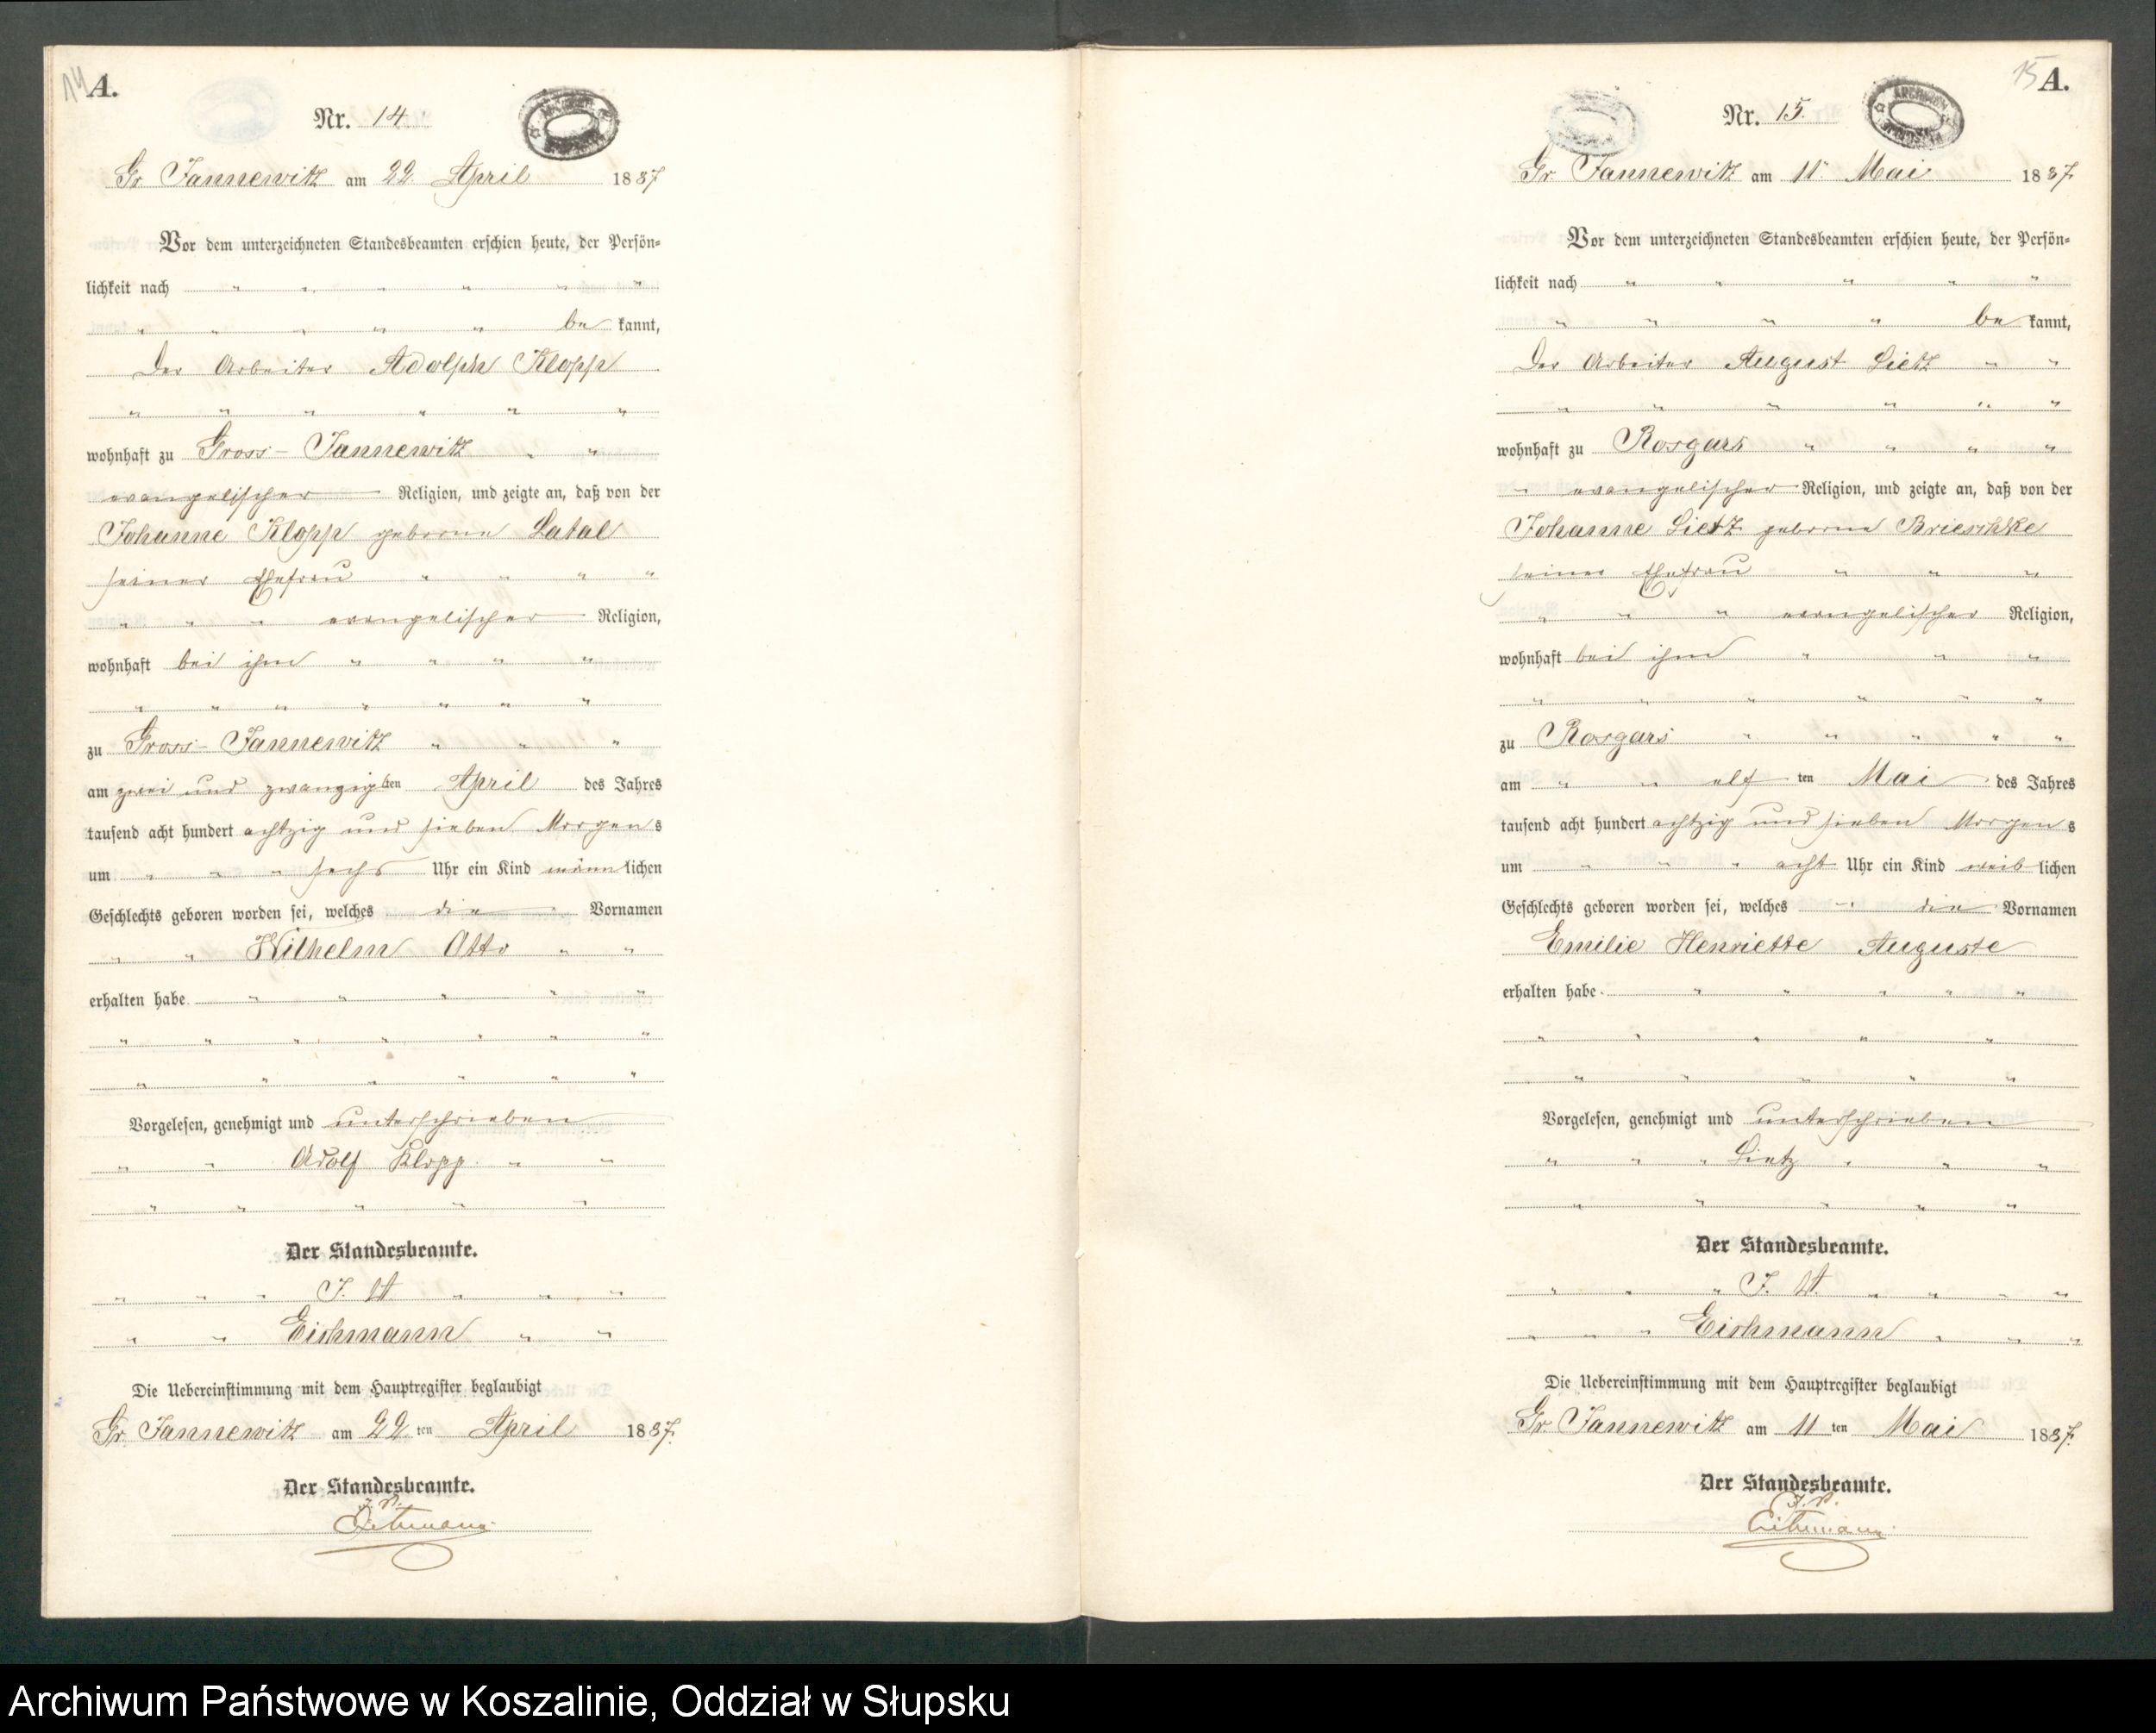 14 A.
Nr. 14.
Gr Jannewitz am 22. April 1887
Vor dem unterzeichneten Standesbeamten erschien heute, der Persön-
lichkeit nach " " " " " "
" " " " " be kannt,
Der Arbeiter Adolph Klopp
" " " " " "
wohnhaft zu Gross-Jannewitz " "
evangelischer Religion, und zeigte an, daß von der
Johanne Klopp geborne Latal
seiner Ehefrau " " " "
" " " evangelischer Religion,
wohnhaft bei ihm " " " "
" " " " " " "
zu Gross-Jannewitz " " "
am zwei und zwanzigsten April des Jahres
tausend acht hundert achtzig und sieben Morgens
um " " " sechs Uhr ein Kind männlichen
Geschlechts geboren worden sei, welches die Vornamen
" " Wilhelm Otto " "
erhalten habe. " " " " "
" " " " " " "
" " " " " "
Vorgelesen, genehmigt und unterschrieben
" " Adolf Klopp. " "
" " " " "
Der Standesbeamte.
" " " J. V. " " "
" " Eichmann " "
Die Uebereinstimmung mit dem Hauptregister beglaubigt
Gr. Jannewitz am 22 ten April 1887.
Der Standesbeamte.
J. V.
Eichmann
15 A.
Nr. 15.
ARCHIWUM
Gr Jannewitz am 11. Mai 1887.
Vor dem unterzeichneten Standesbeamten erschien heute, der Persön-
lichkeit nach " " " " "
" " " " be kannt,
Der Arbeiter August Lietz " "
" " " " " "
wohnhaft zu Rosgars " " " "
" evangelischer Religion, und zeigte an, daß von der
Johanne Lietz geborne Brieschke
seiner Ehefrau " " "
" " " evangelischer Religion,
wohnhaft bei ihm " " "
" " " " " "
zu Rosgars " " " " "
am " " elf ten Mai des Jahres
tausend acht hundert achtzig und sieben Morgens
um " " " acht Uhr ein Kind weiblichen
Geschlechts geboren worden sei, welches " die Vornamen
Emilie Henriette Auguste
erhalten habe. " " " " "
" " " " "
" " " " "
Vorgelesen, genehmigt und unterschrieben
" " " Lietz " " "
" " " " "
Der Standesbeamte.
" " " J. V. " " " "
" " " Eichmann " " "
Die Uebereinstimmung mit dem Hauptregister beglaubigt
Gr. Jannewitz am 11 ten Mai 1887.
Der Standesbeamte.
J. V.
Eichmann
Archiwum Państwowe w Koszalinie, Oddział w Słupsku